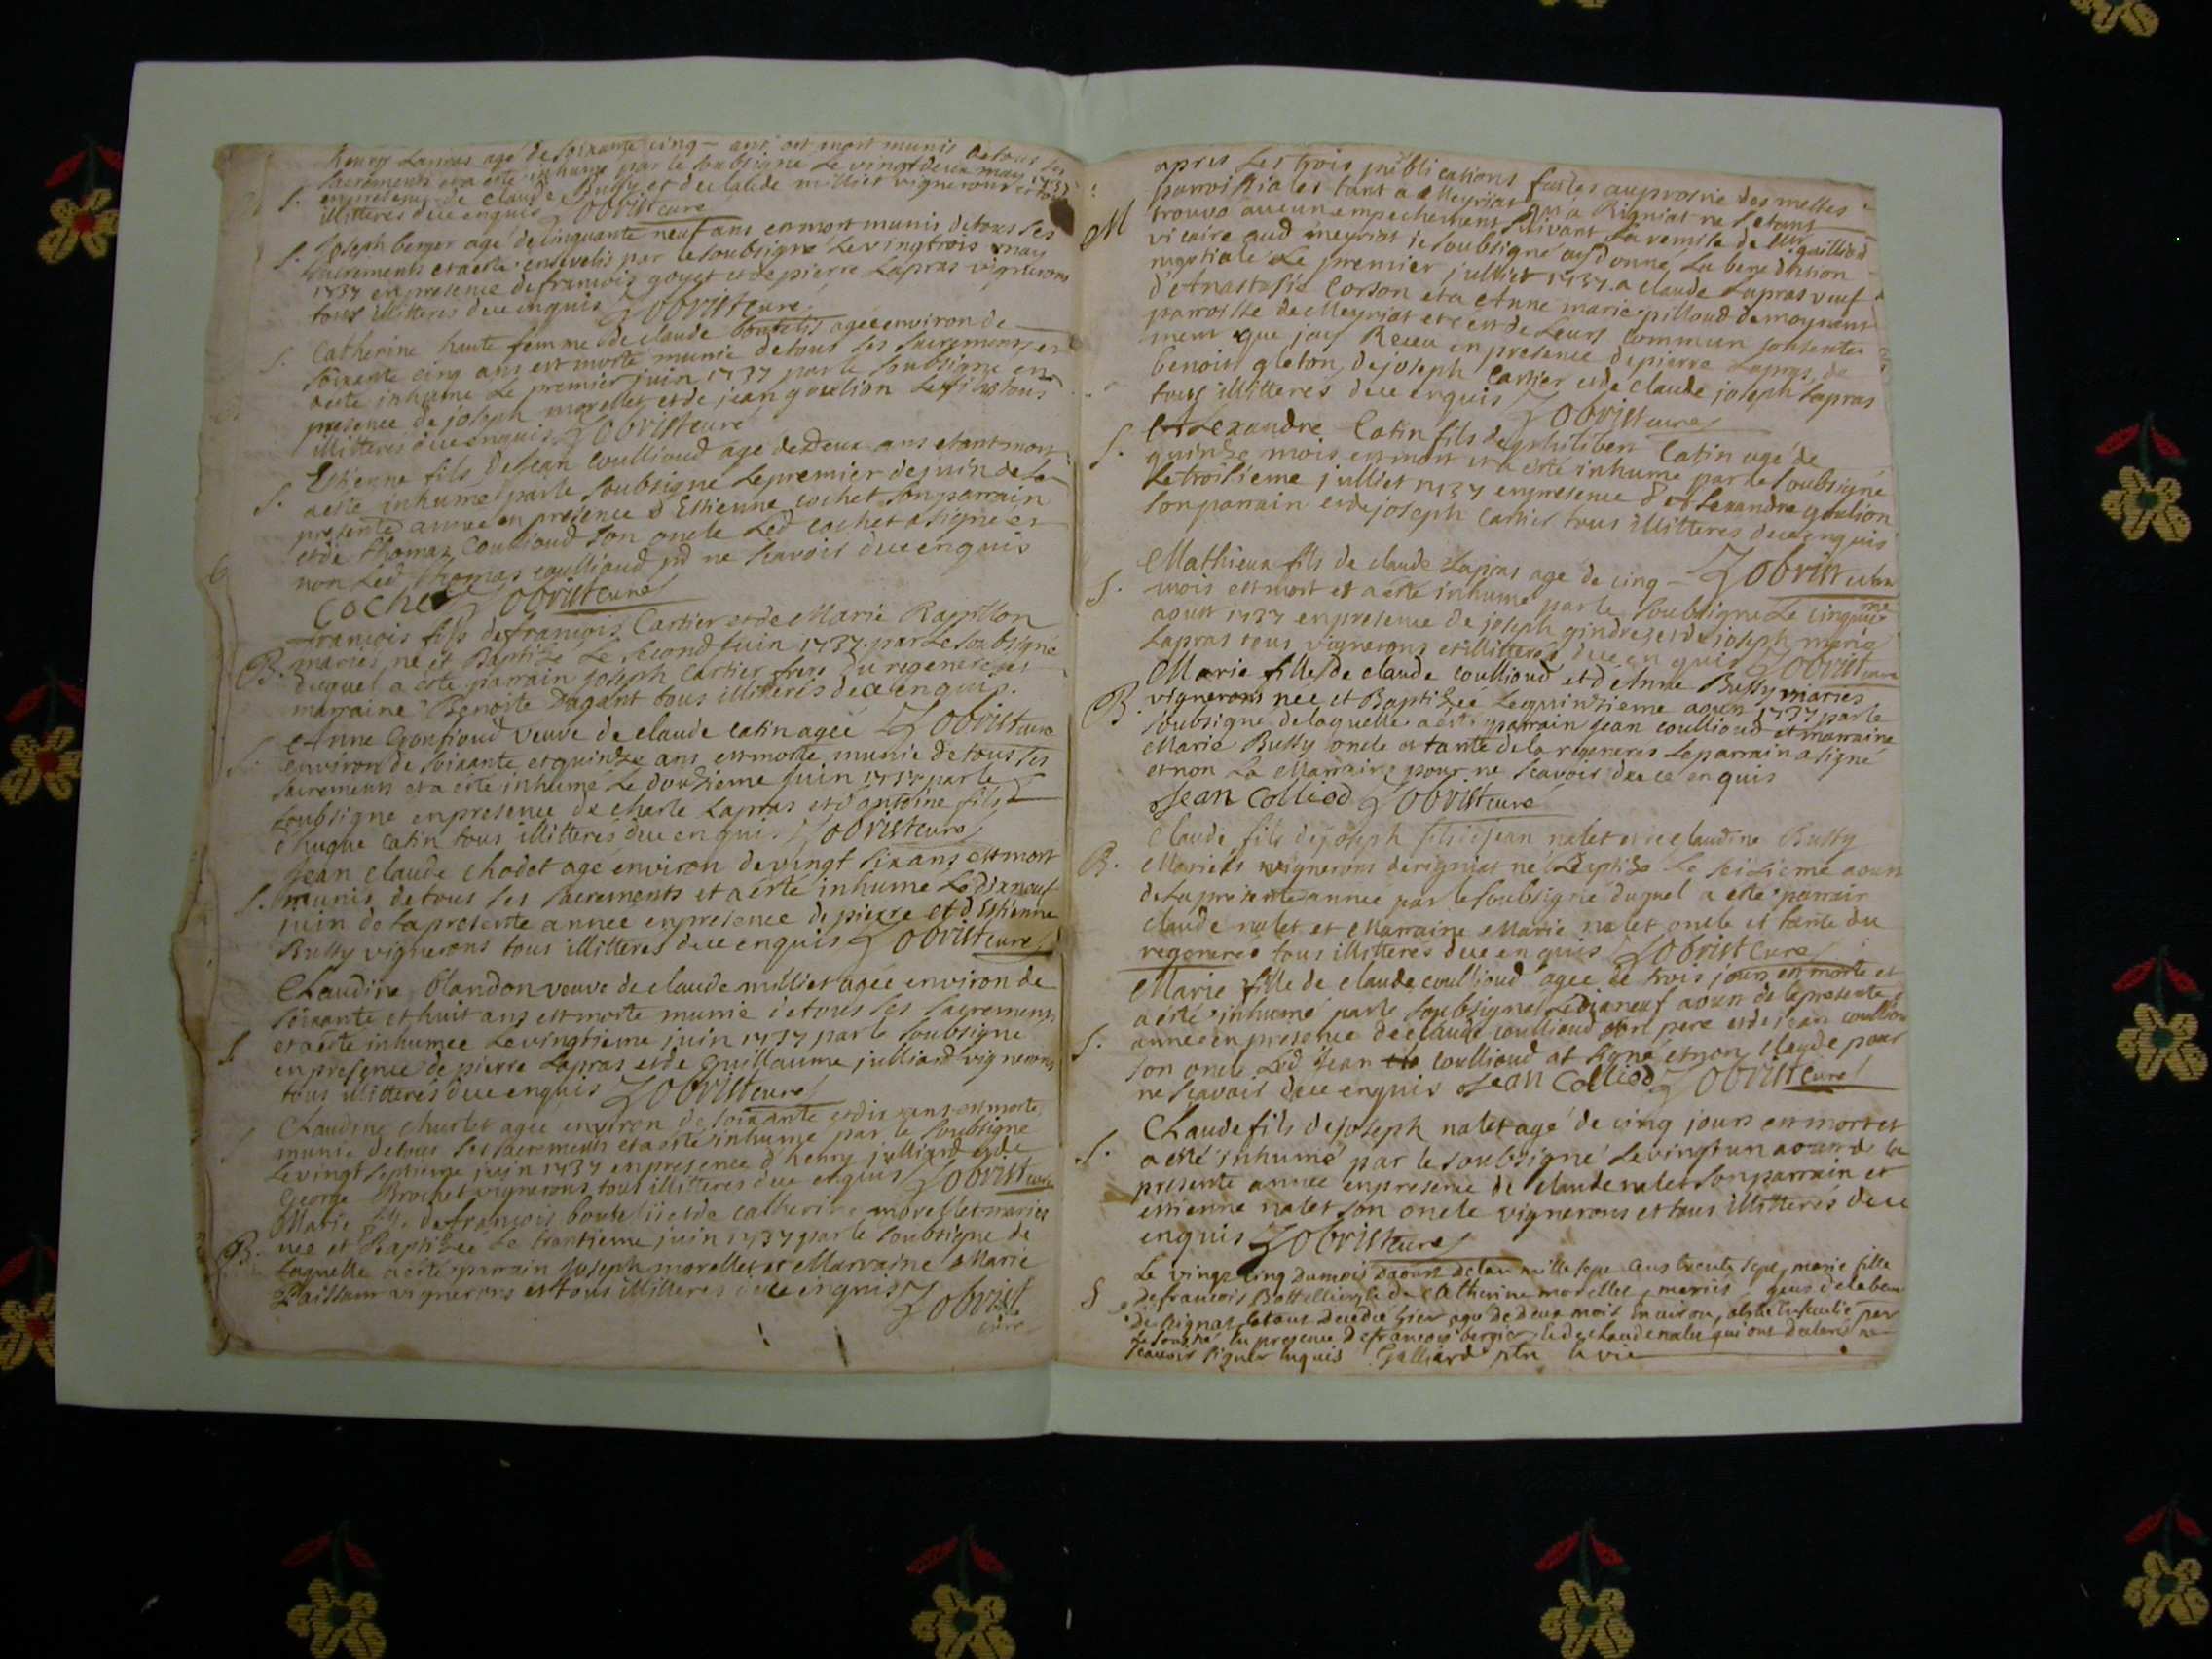 henry Lapras agé de soixante cinq ans est mort munis de tous ses
sacrements et a esté inhumé par le soubsigné Le vingt deux may 1737
S. en presence de claude Bussy et de claude milliet vignerons et tous
illitteres de ce enquis Zobrist curé
Joseph berger agé de cinquante neuf ans est mort munis de tous ses
S. sacrements et a esté ensevelis par le soubsigné Le vingtrois may
1737 en presence de francois goyet et de pierre Lapras vignerons
tous illitteres de ce enquis Zobrist curé
S. Catherine haute femme de claude agée environ de
soixante cinq ans est morte munie de tous ses sacrements et
a esté inhumé Le premier juin 1737 par le soubsigné en
presence de joseph morellet et de jean goulion Le fils tous
illitteres de ce enquis Zobrist curé
Estienne fils de Jean Coullioud agé de Deux ans etant mort
S. a esté inhumé par le soubsigné Le premier de juin de la
presente année en presence d'Estienne cochet son parrain
et de thomas Coullioud son oncle Led cochet a signé et
non Led thomas coullioud pd ne scavoir de ce enquis
Cochet Zobrist curé
francois fils de francois Cartier et de Marie
B. mariés né et Baptizé Le second Juin 1737 par Le soubsigné
duquel a esté parrain joseph Cartier frere du regeneré et
marraine Benoite Dagant tous illitteres de ce enquis.
Anne veuve de claude catin agée Zobrist curé
S. environ de soixante et quinze ans est morte munie de tous ses
sacrements et a esté inhumé Le douzieme Juin 1737 par le
soubsigné en presence de charle Lapras et d'antoine fils
d'hugue catin tous illitteres de ce enquis Zobrist curé
Jean claude chodet agé environ de vingt six ans est mort
S. munis de tous ses sacrements et a esté inhumé Le dixneuf
juin de La presente année en presence de pierre et d'Estienne
Bussy vignerons tous illitteres de ce enquis Zobrist curé
Claudine Blandon veuve de claude milliet agée environ de
soixante et huit ans est morte munie de tous ses sacrements
S et a esté inhumée Le vingtieme juin 1737 par le soubsigné
en presence de pierre Lapras et de Guillaume julliard vignerons
tous illitteres de ce enquis Zobrist curé
Claudine agée environ de soixante et dix ans est morte
S munie de tous ses sacrements et a esté inhumée par le soubsigné
Le vingt septieme juin 1737 en presence d'henry julliard et de
George Brochet vignerons tous illitteres de ce enquis Zobrist curé
Marie fille de francois et de catherine morellet mariés
B. née et Baptizée Le trentieme juin 1737 par le soubsigné de
Laquelle a esté parrain Joseph morellet et Marraine Marie
vignerons et tous illitteres de ce enquis Zobrist
curé
apres Les trois publications faites au prosne des messes
parroissiales tant a Meyriat qu'a Rigniat ne s'etant
M trouvé aucun empechement suivant La remise de Mr guilliard
vicaire aud meyriat je soubsigné ay donné La benediction
nuptiale Le premier julliet 1737 a claude Lapras veuf
d'Anastasie Corson et a Anne marie pilloud de
parroisse de Meyriat et c'est de Leurs commun consente-
ment que jay Receu en presence de pierre Lapras, de
benoit gleton, de joseph Cartier et de claude joseph Lapras
tous illitteres de ce enquis Zobrist curé
Alexandre Catin fils de philibert Catin agé de
S. quinze mois est mort et a esté inhumé par le soubsigné
Le troisieme julliet 1737 en presence d'Alexandre goulion
son parrain et de joseph Cartier tous illitteres de ce enquis
Zobrist curé
Mathieu fils de claude Lapras agé de cinq
S. mois est mort et a esté inhumé par le soubsigné Le cinquieme
aoust 1737 en presence de joseph gindre et de joseph marie
Lapras tous vignerons et illitteres de ce enquis Zobrist curé
Marie fille de claude coullioud et d'Anne Bussy mariés
B. vignerons née et Baptizée Le quinzieme aoust 1737 par le
soubsigné de laquelle a esté parrain Jean coullioud et marraine
Marie Bussy oncle et tante de la regenerée Le parrain a signé
et non La Marraine pour ne scavoir de ce enquis
Jean Colliod Zobrist curé
Claude fils de joseph fils de jean nalet et de claudine Bussy
B. Mariés vignerons de rigniat né Baptizé Le seizieme aoust
de La presente année par le soubsigné duquel a esté parrain
claude nalet et Marraine Marie nalet oncle et tante du
regeneré tous illitteres de ce enquis Zobrist Curé
Marie fille de claude coullioud agée de trois jours est morte et
a esté inhumé par le soubsigné Le dixneuf aoust de la presente
S. année en presence de claude coullioud son pere et de jean coullioud
son oncle Led Jean coullioud at signé et non claude pour
ne scavoir de ce enquis Jean Colliod Zobrist curé
Claude fils de joseph nalet agé de cinq jours est mort et
S. a esté inhumé par le soubsigné Le vingt un aoust de la
presente année en presence de claude nalet son parrain et
estienne nalet son oncle vignerons et tous illitteres de ce
enquis Zobrist curé
Le vingt cinq dumois daoust de lan mille sept cens trente sept, marie fille
S de francois et de Catherine morellet, mariés, gens
de Rignat, etant decedée hier agé de deux mois environ, a esté ensevelie par
le soussigné en presence de francois bergier et de claude nalet qui ont declaré ne
scavoir signer enquis Galliard ptre vic